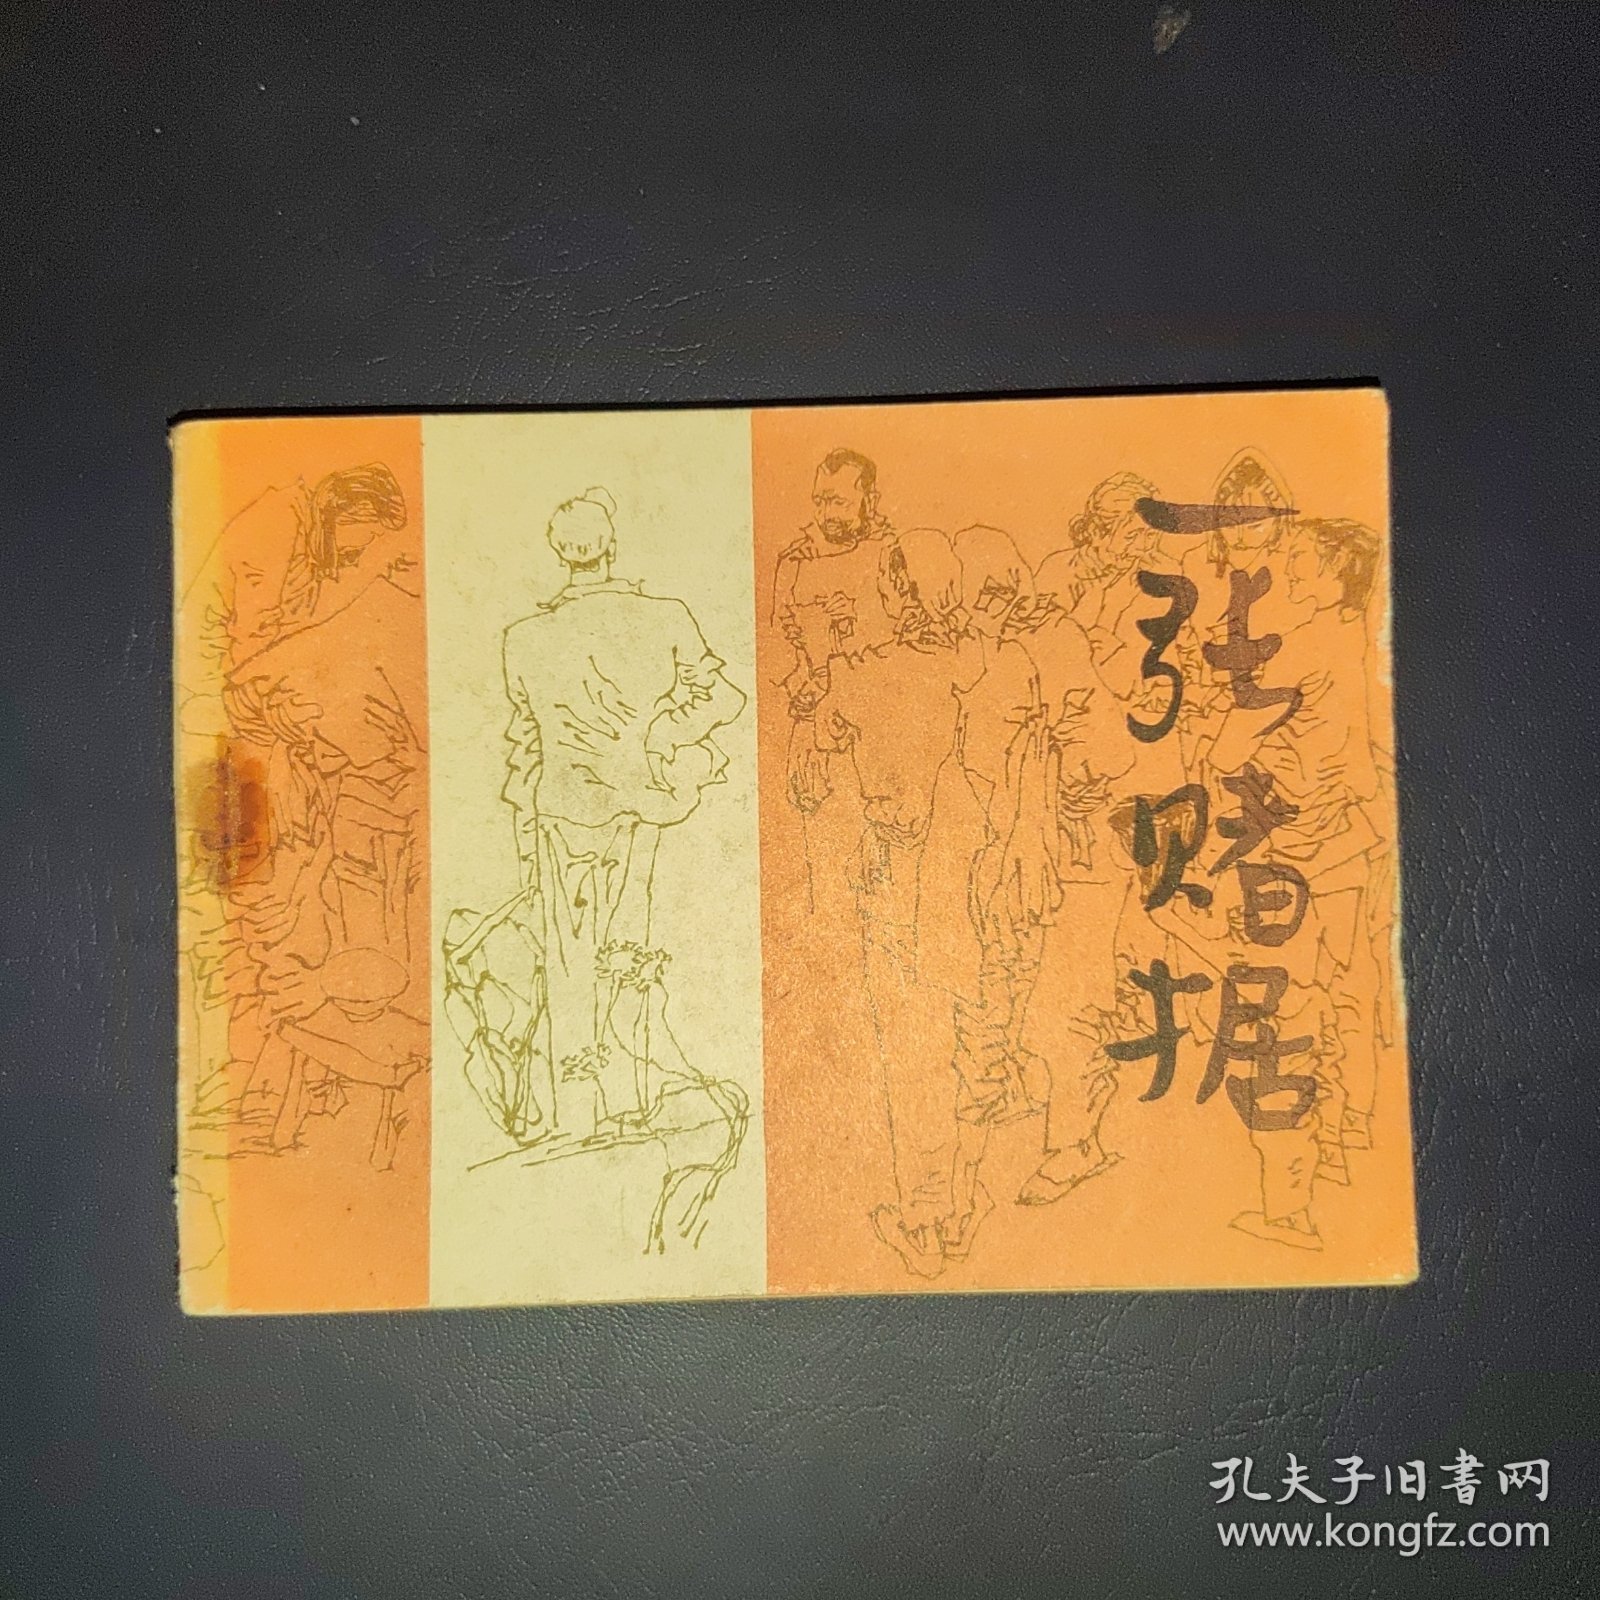 一张赌据
孔夫子旧书网
www.kongfz.com